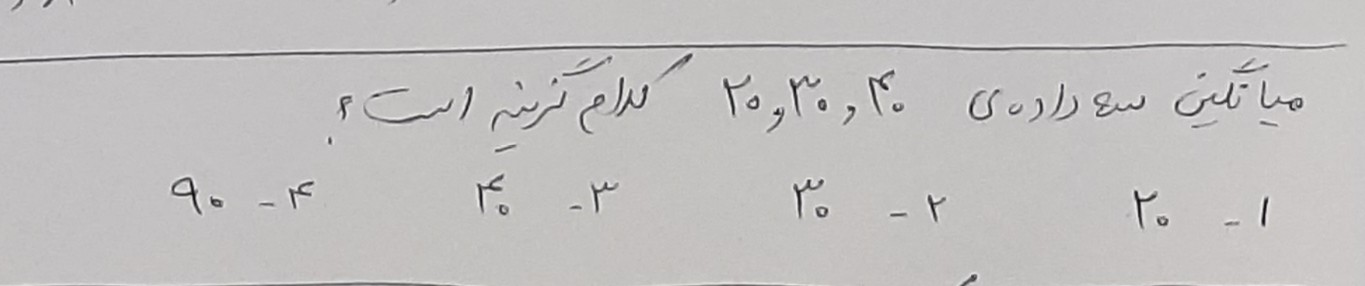 میانگین سه داده‌ی ۴۰ و ۳۰ و ۲۰ کدام گزینه است؟
۱ - ۲۰ ۲ - ۳۰ ۳ - ۴۰ ۴ - ۹۰